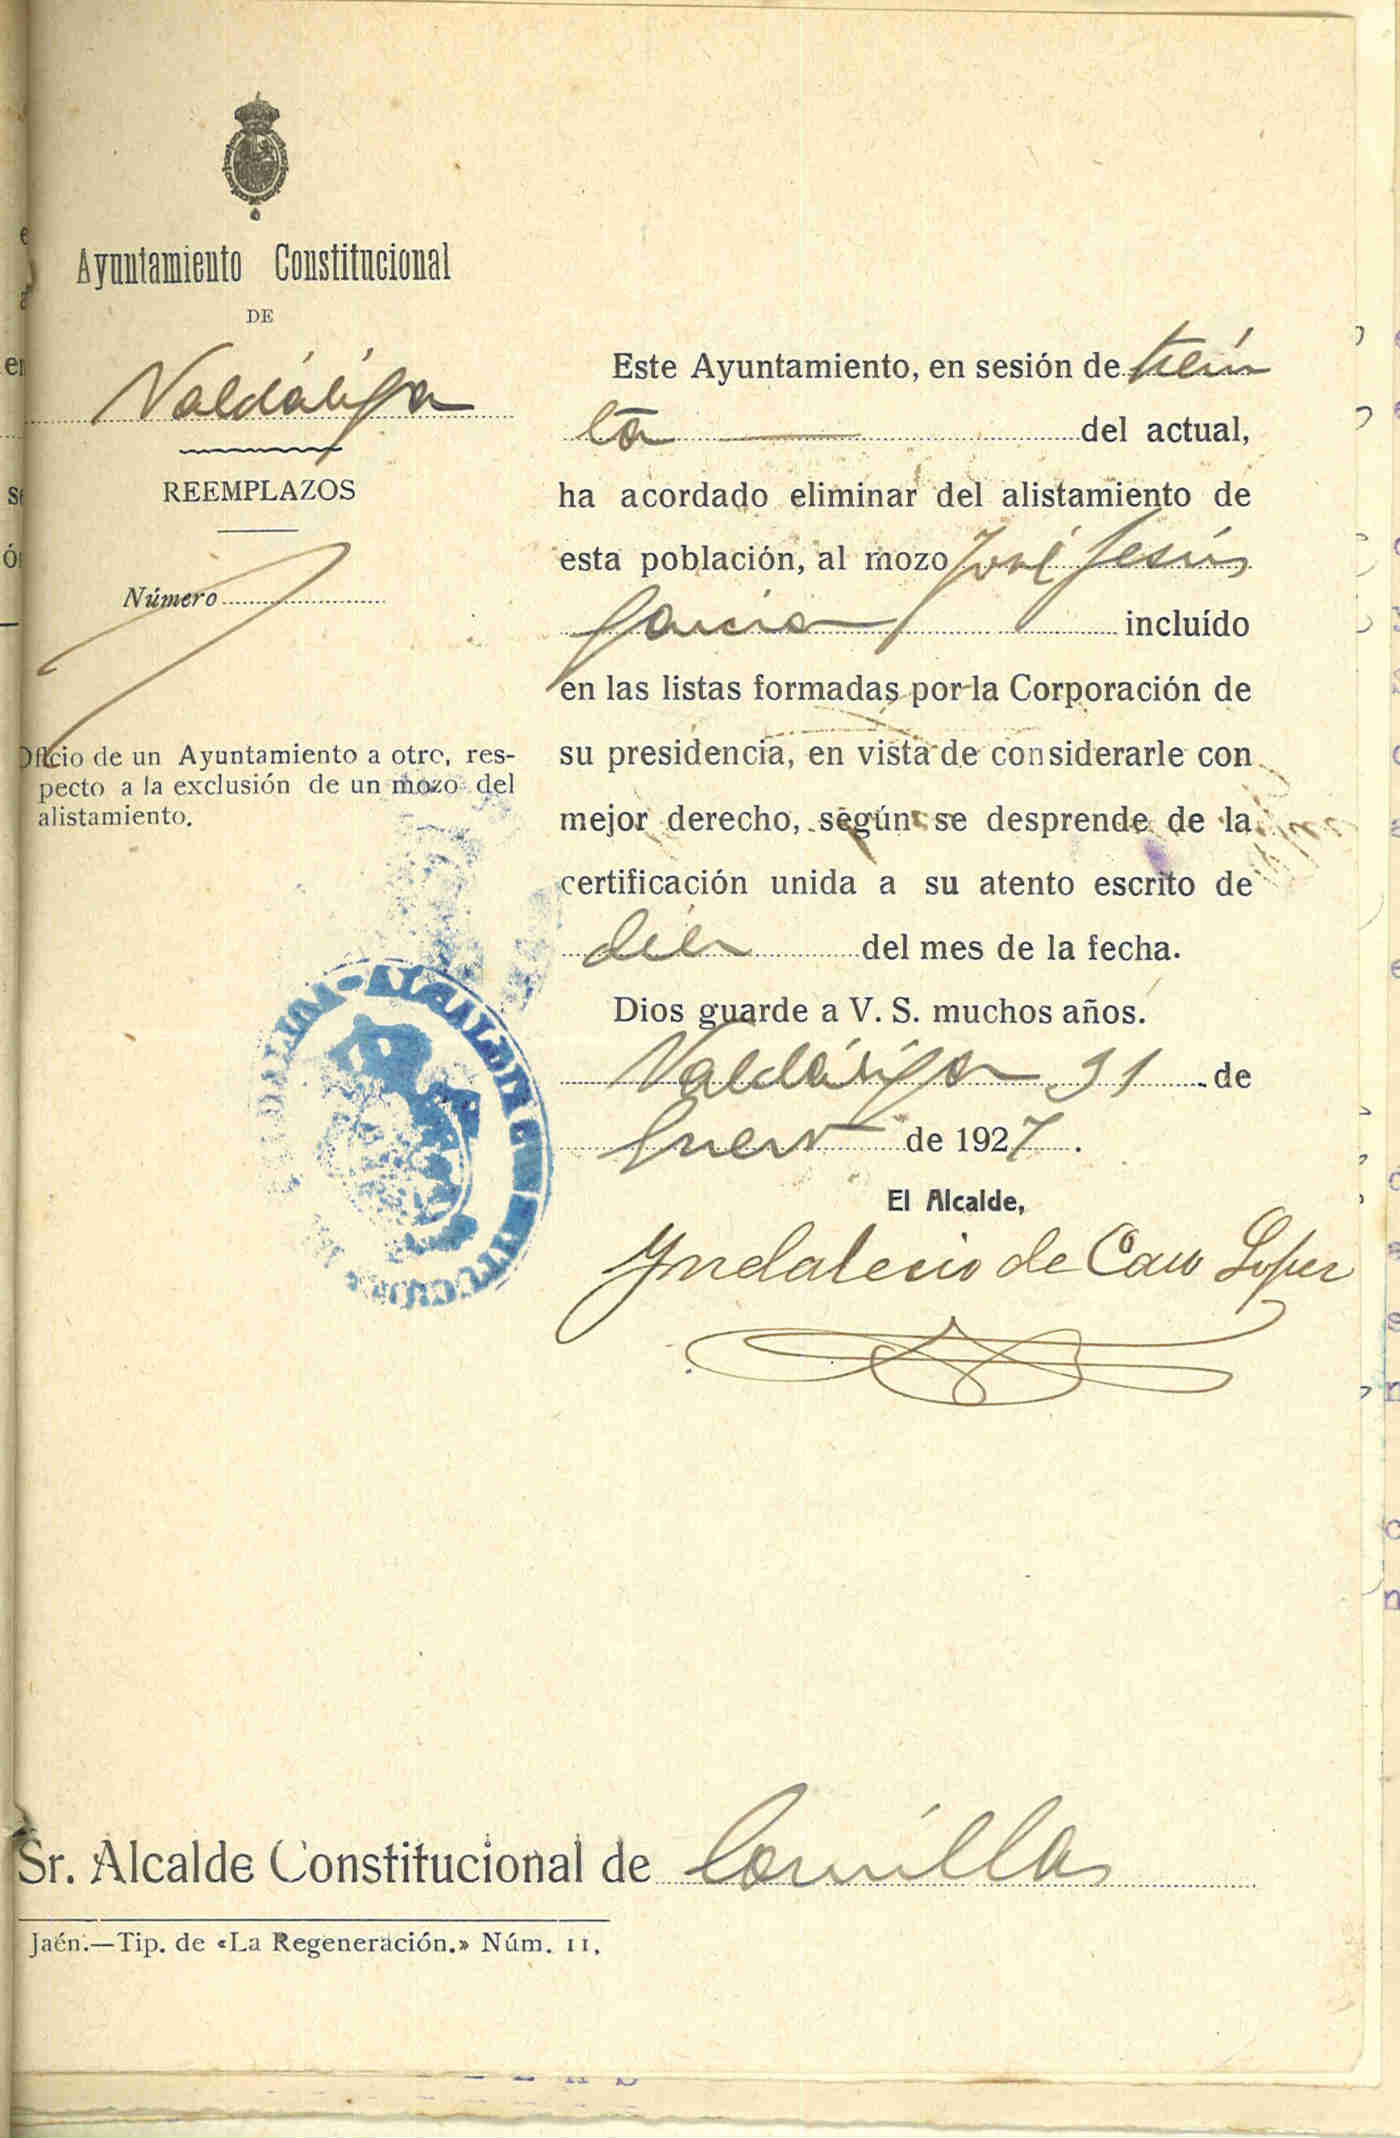 Ayuntamiento Constitucional
DE
Valdáliga
REEMPLAZOS
Número
Oficio de un Ayuntamiento a otro, res-
pecto a la exclusión de un mozo del
alistamiento.
Este Ayuntamiento, en sesión de trein
ta del actual,
ha acordado eliminar del alistamiento de
esta población, al mozo José Jesús
García incluído
en las listas formadas por la Corporación de
su presidencia, en vista de considerarle con
mejor derecho, según se desprende de la
certificación unida a su atento escrito de
diez del mes de la fecha.
Dios guarde a V. S. muchos años.
Valdáliga 31 de
Enero de 1927.
El Alcalde,
Yndalecio de Caso Lopez
Sr. Alcalde Constitucional de Comillas
Jaén.—Tip. de «La Regeneración.» Núm. 11.